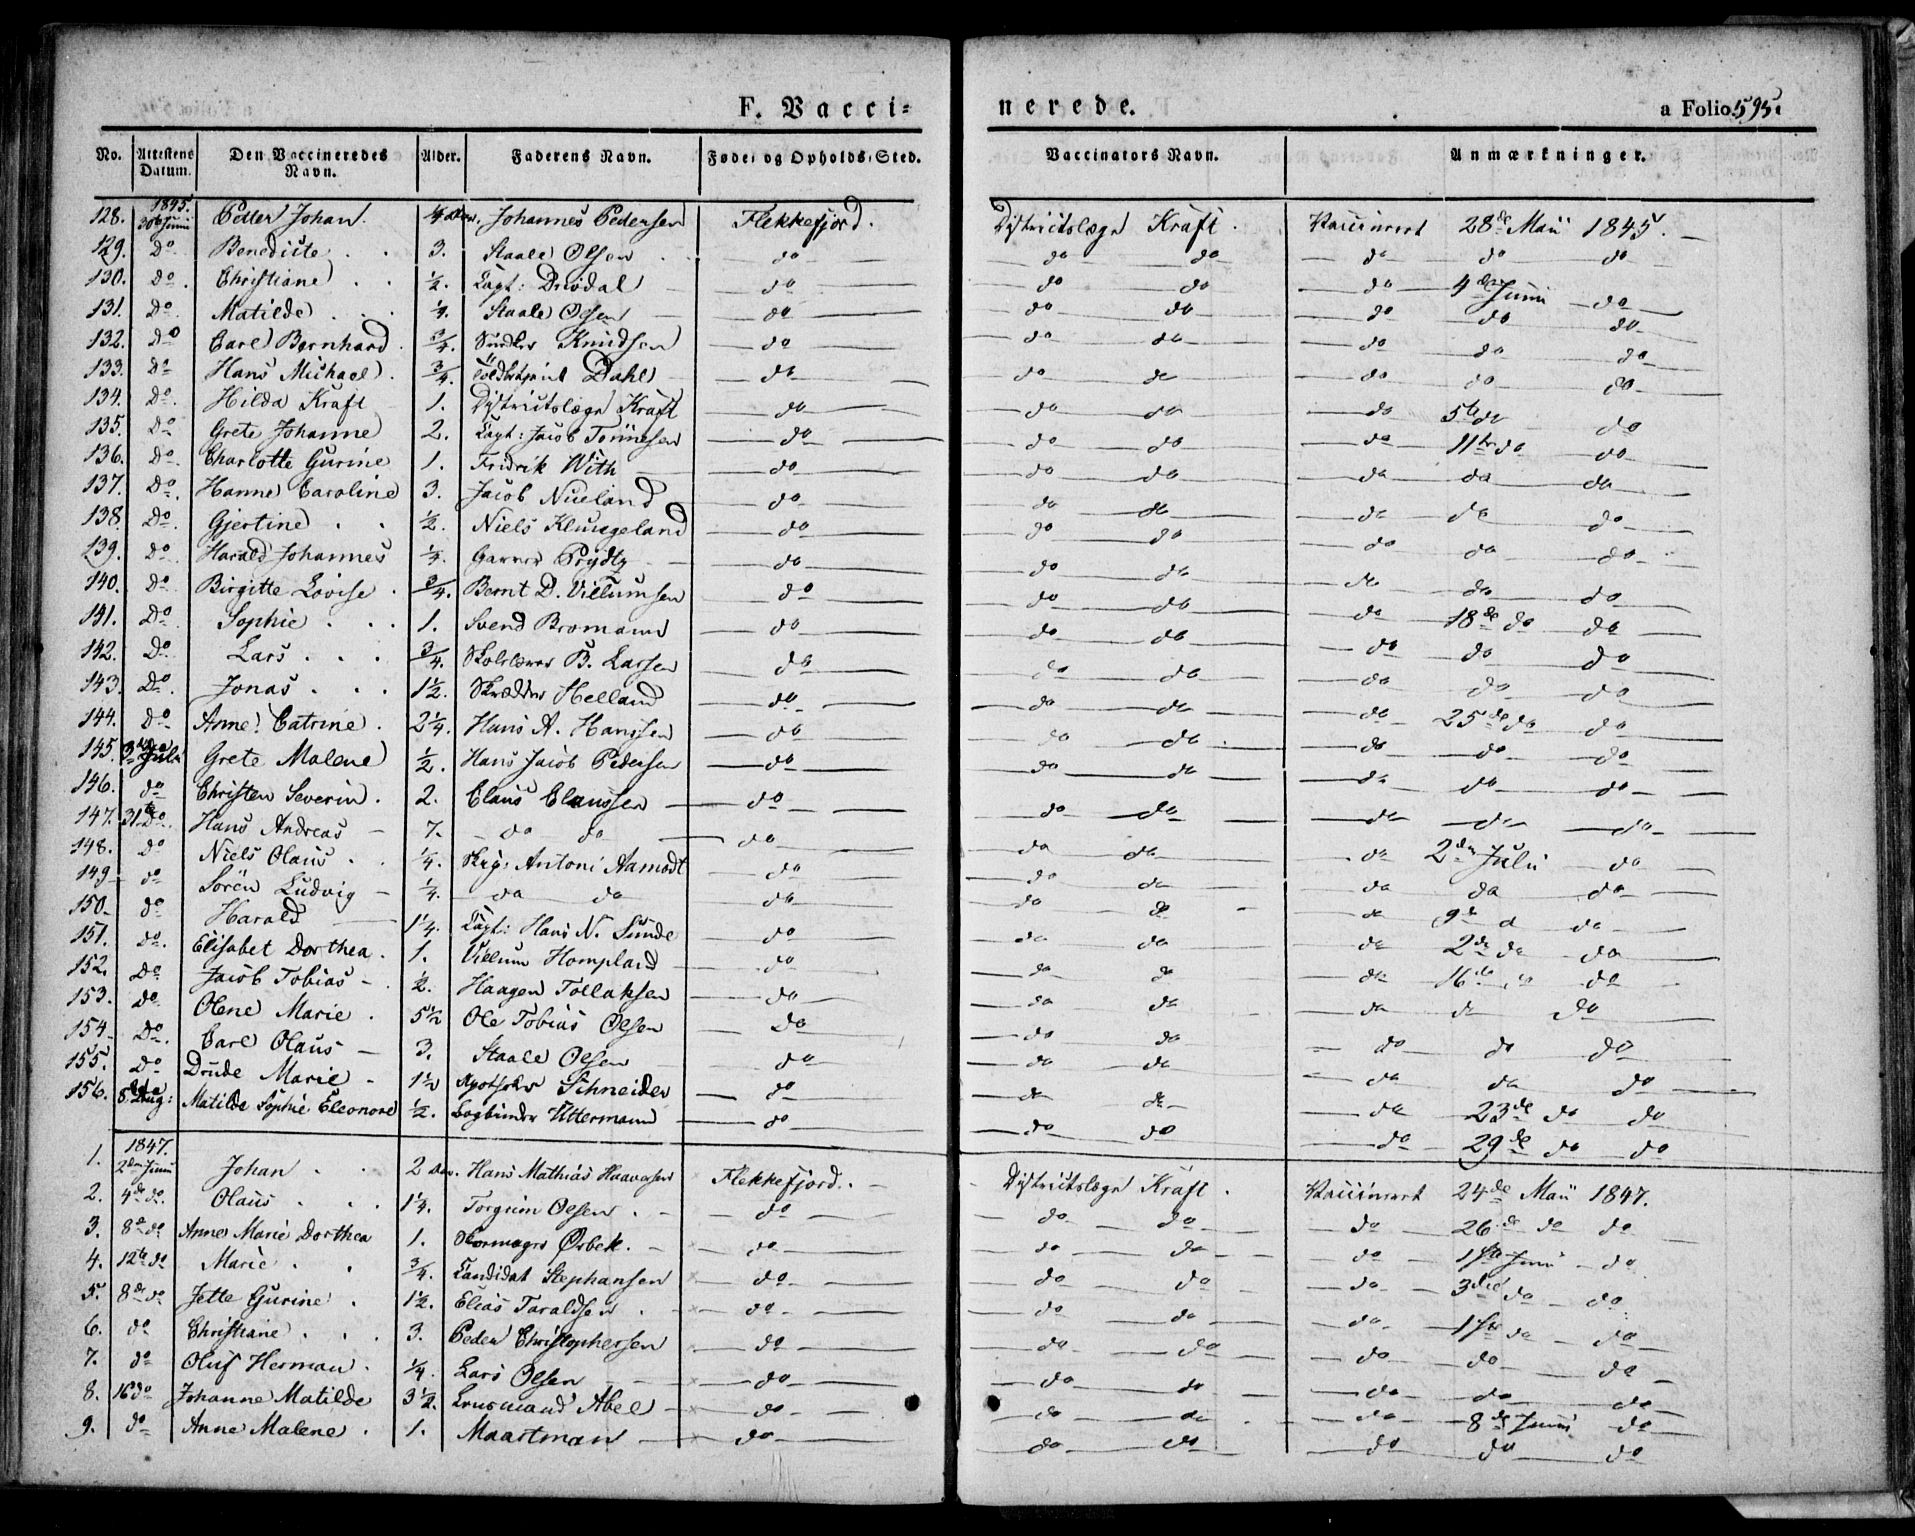 F. Vacci-nerede. a Folio 595.
No. Attestens Datum. Den Vaccineredes Navn. Alder. Faderens Navn. Føde- og Opholds-Sted. Vaccinators Navn. Anmærkninger.
128. 1845. 30te Juni Petter Johan. 1/4 Johannes Pedersen Flekkefjord. Districtslæge Kraft. Vaccineret 28de Maii 1845.
129. do Benedicte 3. Staale Olsen do do do do do do
130. do Christiane 1/2. Capt: Drivdal do do do do 4de Juni do
131. do Matilde 1/4. Staale Olsen do do do do do do
132. do Carl Bernhard 3/4. Knudsen do do do do do do
133. do Hans Michael 3/4. Dahl do do do do do do
134. do Hilda Kraft 1. Districtslæge Kraft do do do do 5te do do
135. do Grete Johanne 2. Capt: Jacob Tönnesen do do do do 11te do do
136. do Charlotte Gurine 1. Fridrik With do do do do do do
137. do Hanne Caroline 3. Jacob Nueland do do do do do do
138. do Gjertine 1/2. Niels Klungeland do do do do do do
139. do Harald Johannes 1/4. Garver Prydtz do do do do do do
140. do Birgitte Lovise 3/4. Bernt D. Villumsen do do do do 18de do do
141. do Sophie 1. Svend Bromann do do do do do do
142. do Lars 3/4. Skolelærer B. Larsen do do do do do do
143. do Jonas 1 1/2. Skrædder Helland do do do do 25de do do
144. do Anne Catrine 2 1/4. Hans A. Hanssen do do do do do do
145. Juli Grete Malene 1/2. Hans Jacob Pedersen do do do do do do
146. do Christen Severin. 2. Claus Claussen do do do do do do
147. 31te do Hans Andreas 7. do do do do do do 2den Julii do
148. do Niels Olaus 1/4. Skip: Antoni Aamodt do do do do do do
149 do Sören Ludvig 1/4. do do do do do do 9de d do
150. do Harald 1 1/4. Capt: Hans N. Sunde do do do do 2de do do
151. do Elisabet Dorthea. 1. Villum Hompland do do do do 16de do
152. do Jacob Tobias 1/2. Haagen Tollaksen do do do do do do
153. do Olene Marie 5 1/2 Ole Tobias Olsen do do do do do do
154. do Carl Olaus 3. Staale Olsen do do do do do do
155. do Drude Marie 1 1/2 Apotheker Schneider do do do do 23de do do
156. 8de Aug: Matilde Sophie Eleonore 1/2. Bogbinder Uttermann do do do do 29de do do
1. 1847. 2den Juni Johan 2 Hans Mathias Haavorsen Flekkefjord. Districtslæge Kraft. Vaccineret 24de Maii 1847.
2. 4de do. Olaus 1 1/4. Torgrim Olsen do do do do 26de do do
3. 8de do Anne Marie Dorthea 1. Skomager Ørbek. do do do do 1ste Juni do
4. 12te do Marie 3/4. Candidat Stephansen do do do do 3die do do
5. 8de do Jette Gurine 1 1/2. Elias Taraldsen do do do do 1ste do do
6. do Christiane 3. Peder Christophersen do do do do do do
7. do Oluf Herman 1/4. Lars Olsen do do do do do do
8. 16 do Johanne Matilde 3 1/2. Abel do do do do 8de Juni do
9. do Anne Malene 1. Maartman do do do do do do